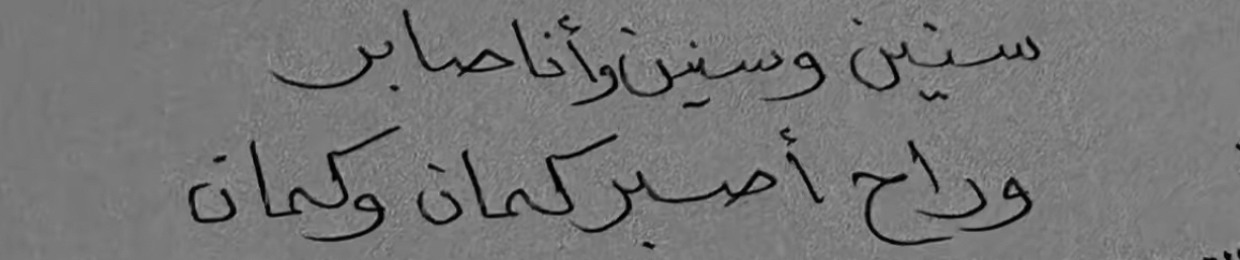 سنين وسنين وأنا صابر
وراح أصبر كمان وكمان